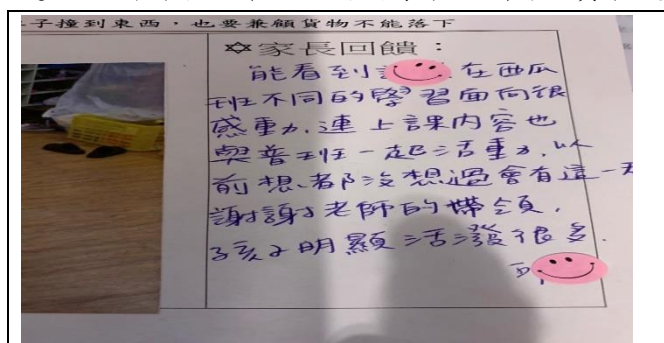 子撞到東西，也要兼顧貨物不能落下
✡家長回饋：
能看到 在西瓜
班不同的學習面向很
感動，連上課內容也
與普班一起活動，以
前想都沒想過會有這一天
謝謝老師的帶領，
孩子明顯活潑很多．